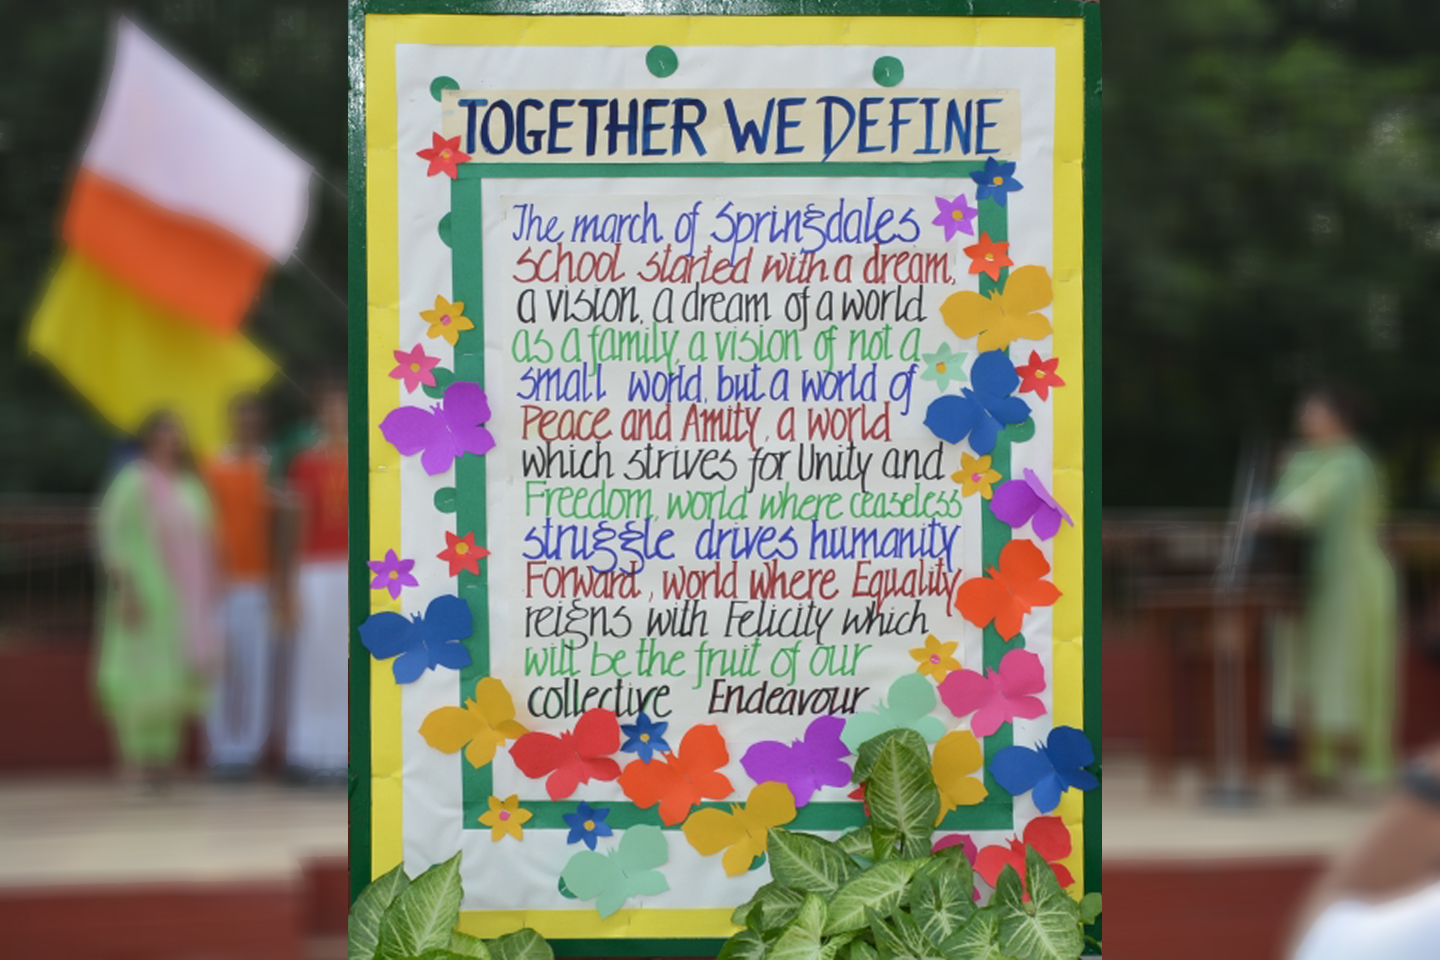 TOGETHER WE DEFINE
The march of Springdales
School started with a dream,
a vision, a dream of a world
as a family, a vision of not a
small world, but a world of
Peace and Amity, a world
which strives for Unity and
Freedom, world where ceaseless
struggle drives humanity
Forward, world where Equality
reigns with Felicity which
will be the fruit of our
collective Endeavour